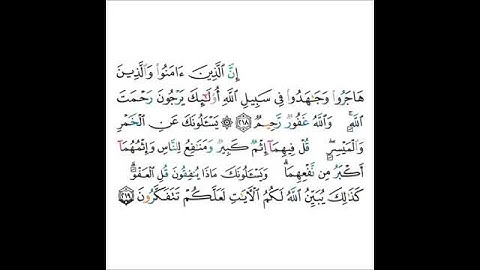 إِنَّ ٱلَّذِينَ ءَامَنُوا۟ وَٱلَّذِينَ
هَاجَرُوا۟ وَجَـٰهَدُوا۟ فِى سَبِيلِ ٱللَّهِ أُو۟لَـٰٓئِكَ يَرْجُونَ رَحْمَتَ
ٱللَّهِ ۚ وَٱللَّهُ غَفُورٌۭ رَّحِيمٌۭ ٢١٨ ۞ يَسْـَٔلُونَكَ عَنِ ٱلْخَمْرِ
وَٱلْمَيْسِرِ ۖ قُلْ فِيهِمَآ إِثْمٌۭ كَبِيرٌۭ وَمَنَـٰفِعُ لِلنَّاسِ وَإِثْمُهُمَآ
أَكْبَرُ مِن نَّفْعِهِمَا ۗ وَيَسْـَٔلُونَكَ مَاذَا يُنفِقُونَ قُلِ ٱلْعَفْوَ ۗ
كَذَٰلِكَ يُبَيِّنُ ٱللَّهُ لَكُمُ ٱلْـَٔايَـٰتِ لَعَلَّكُمْ تَتَفَكَّرُونَ ٢١٩